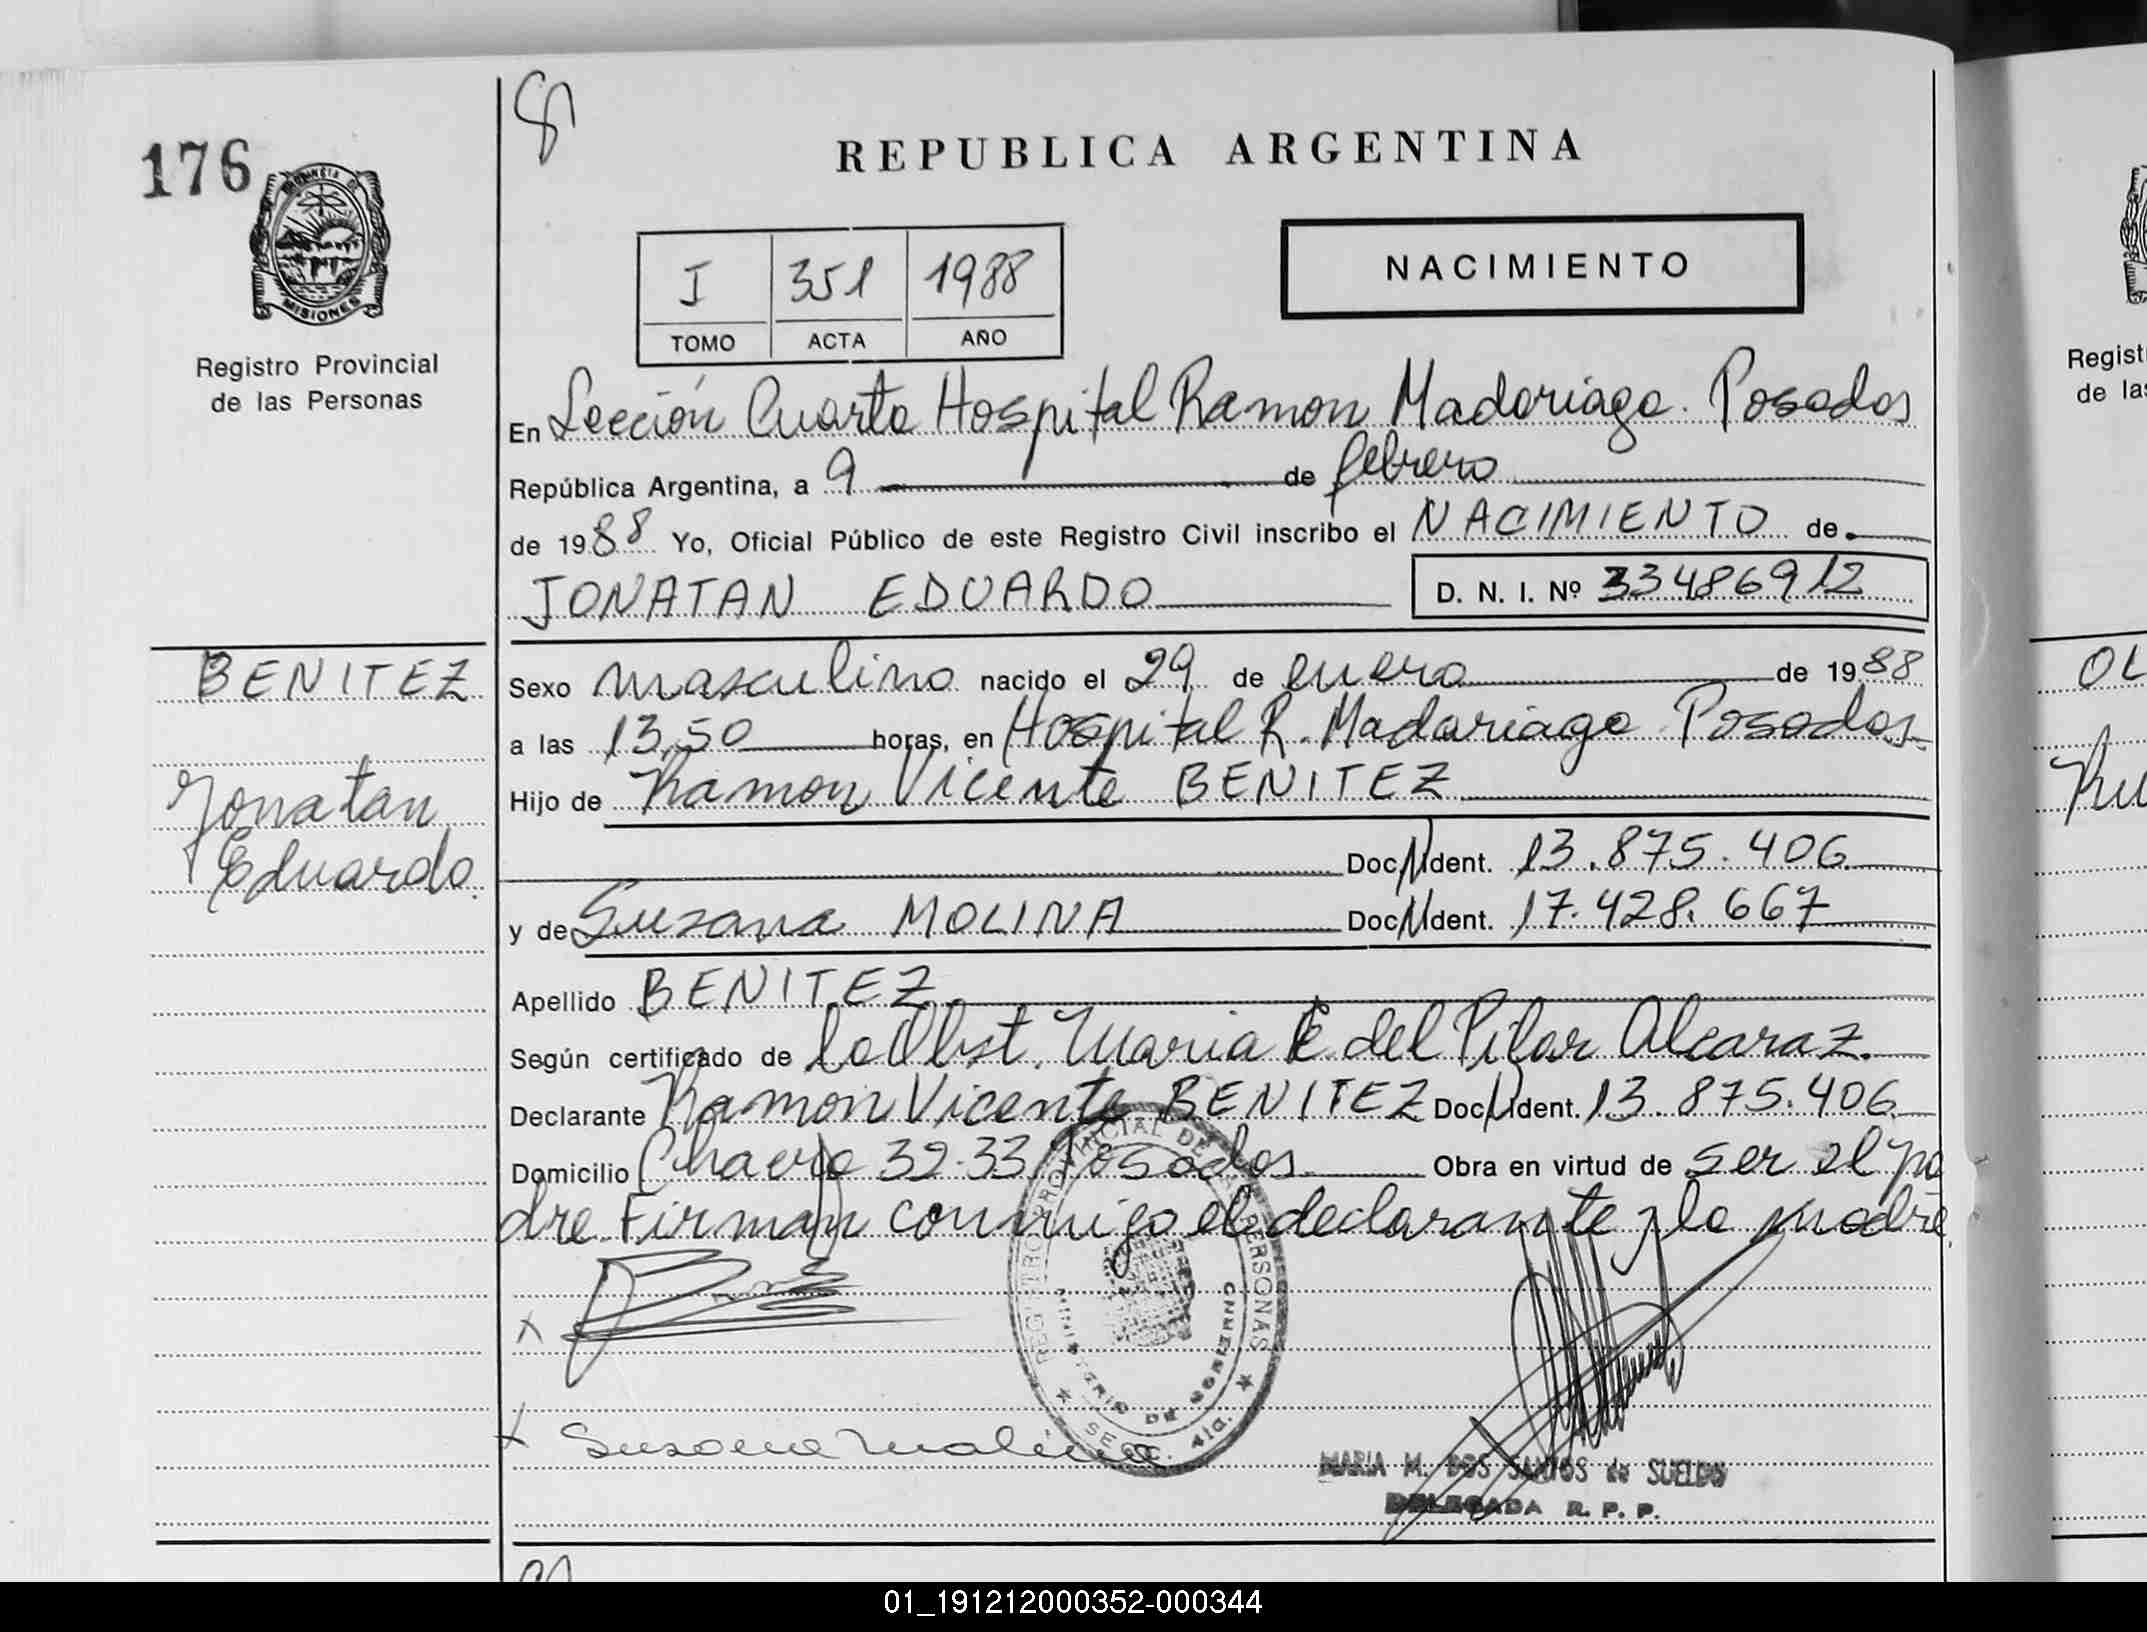 176
REPUBLICA ARGENTINA
PROVINCIA DE
MISIONES
Registro Provincial
de las Personas
I 351 1988
TOMO ACTA AÑO
NACIMIENTO
En Sección Cuarta Hospital Ramon Madariaga. Posadas
República Argentina, a 9 de febrero
de 1988 Yo, Oficial Público de este Registro Civil inscribo el NACIMIENTO de
JONATAN EDUARDO D. N. I. Nº 33486912
BENITEZ
Jonatan
Eduardo.
Sexo masculino nacido el 29 de enero de 1988
a las 13,50 horas, en Hospital R. Madariaga Posadas.
Hijo de Ramon Vicente BENITEZ
Doc. Ident. 13.875.406
y de Susana MOLINA Doc. Ident. 17.428.667
Apellido BENITEZ
Según certificado de la Obst. Maria del Pilar Alcaraz.
Declarante Ramon Vicente BENITEZ Doc. Ident. 13.875.406
Domicilio 32-33 Posadas Obra en virtud de ser el pa
dre. Firman conmigo el declarante y la madre.
x
x Susana Molina
REGISTRO PROVINCIAL DE LAS PERSONAS
MINISTERIO DE GOBIERNO
SECC. 4ta.
MARIA M. DOS SANTOS de SUELDO
DELEGADA R. P. P.
Regist
de las
OL
01_191212000352-000344